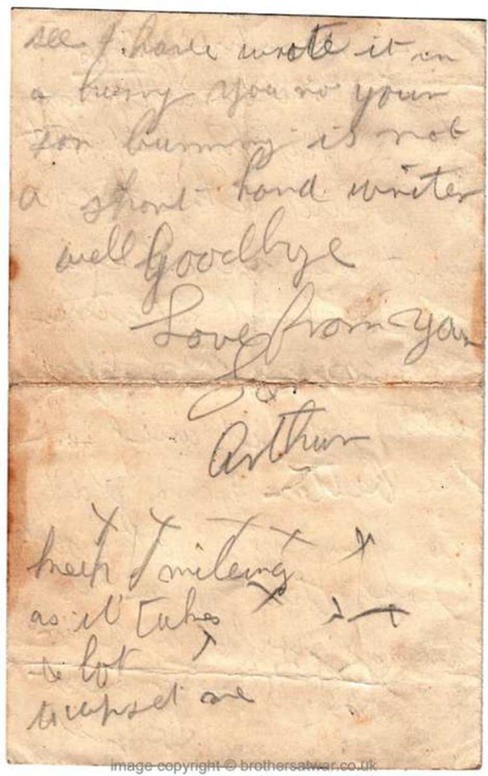 see I have wrote it in
a hurry you no your
son bunny is not
a short hand writer
well Goodbye
Love from your
Son
Arthur
x x x x x
keep Smileing
as it takes x x x
a lot x
to upset me
image copyright © brothersatwar.co.uk